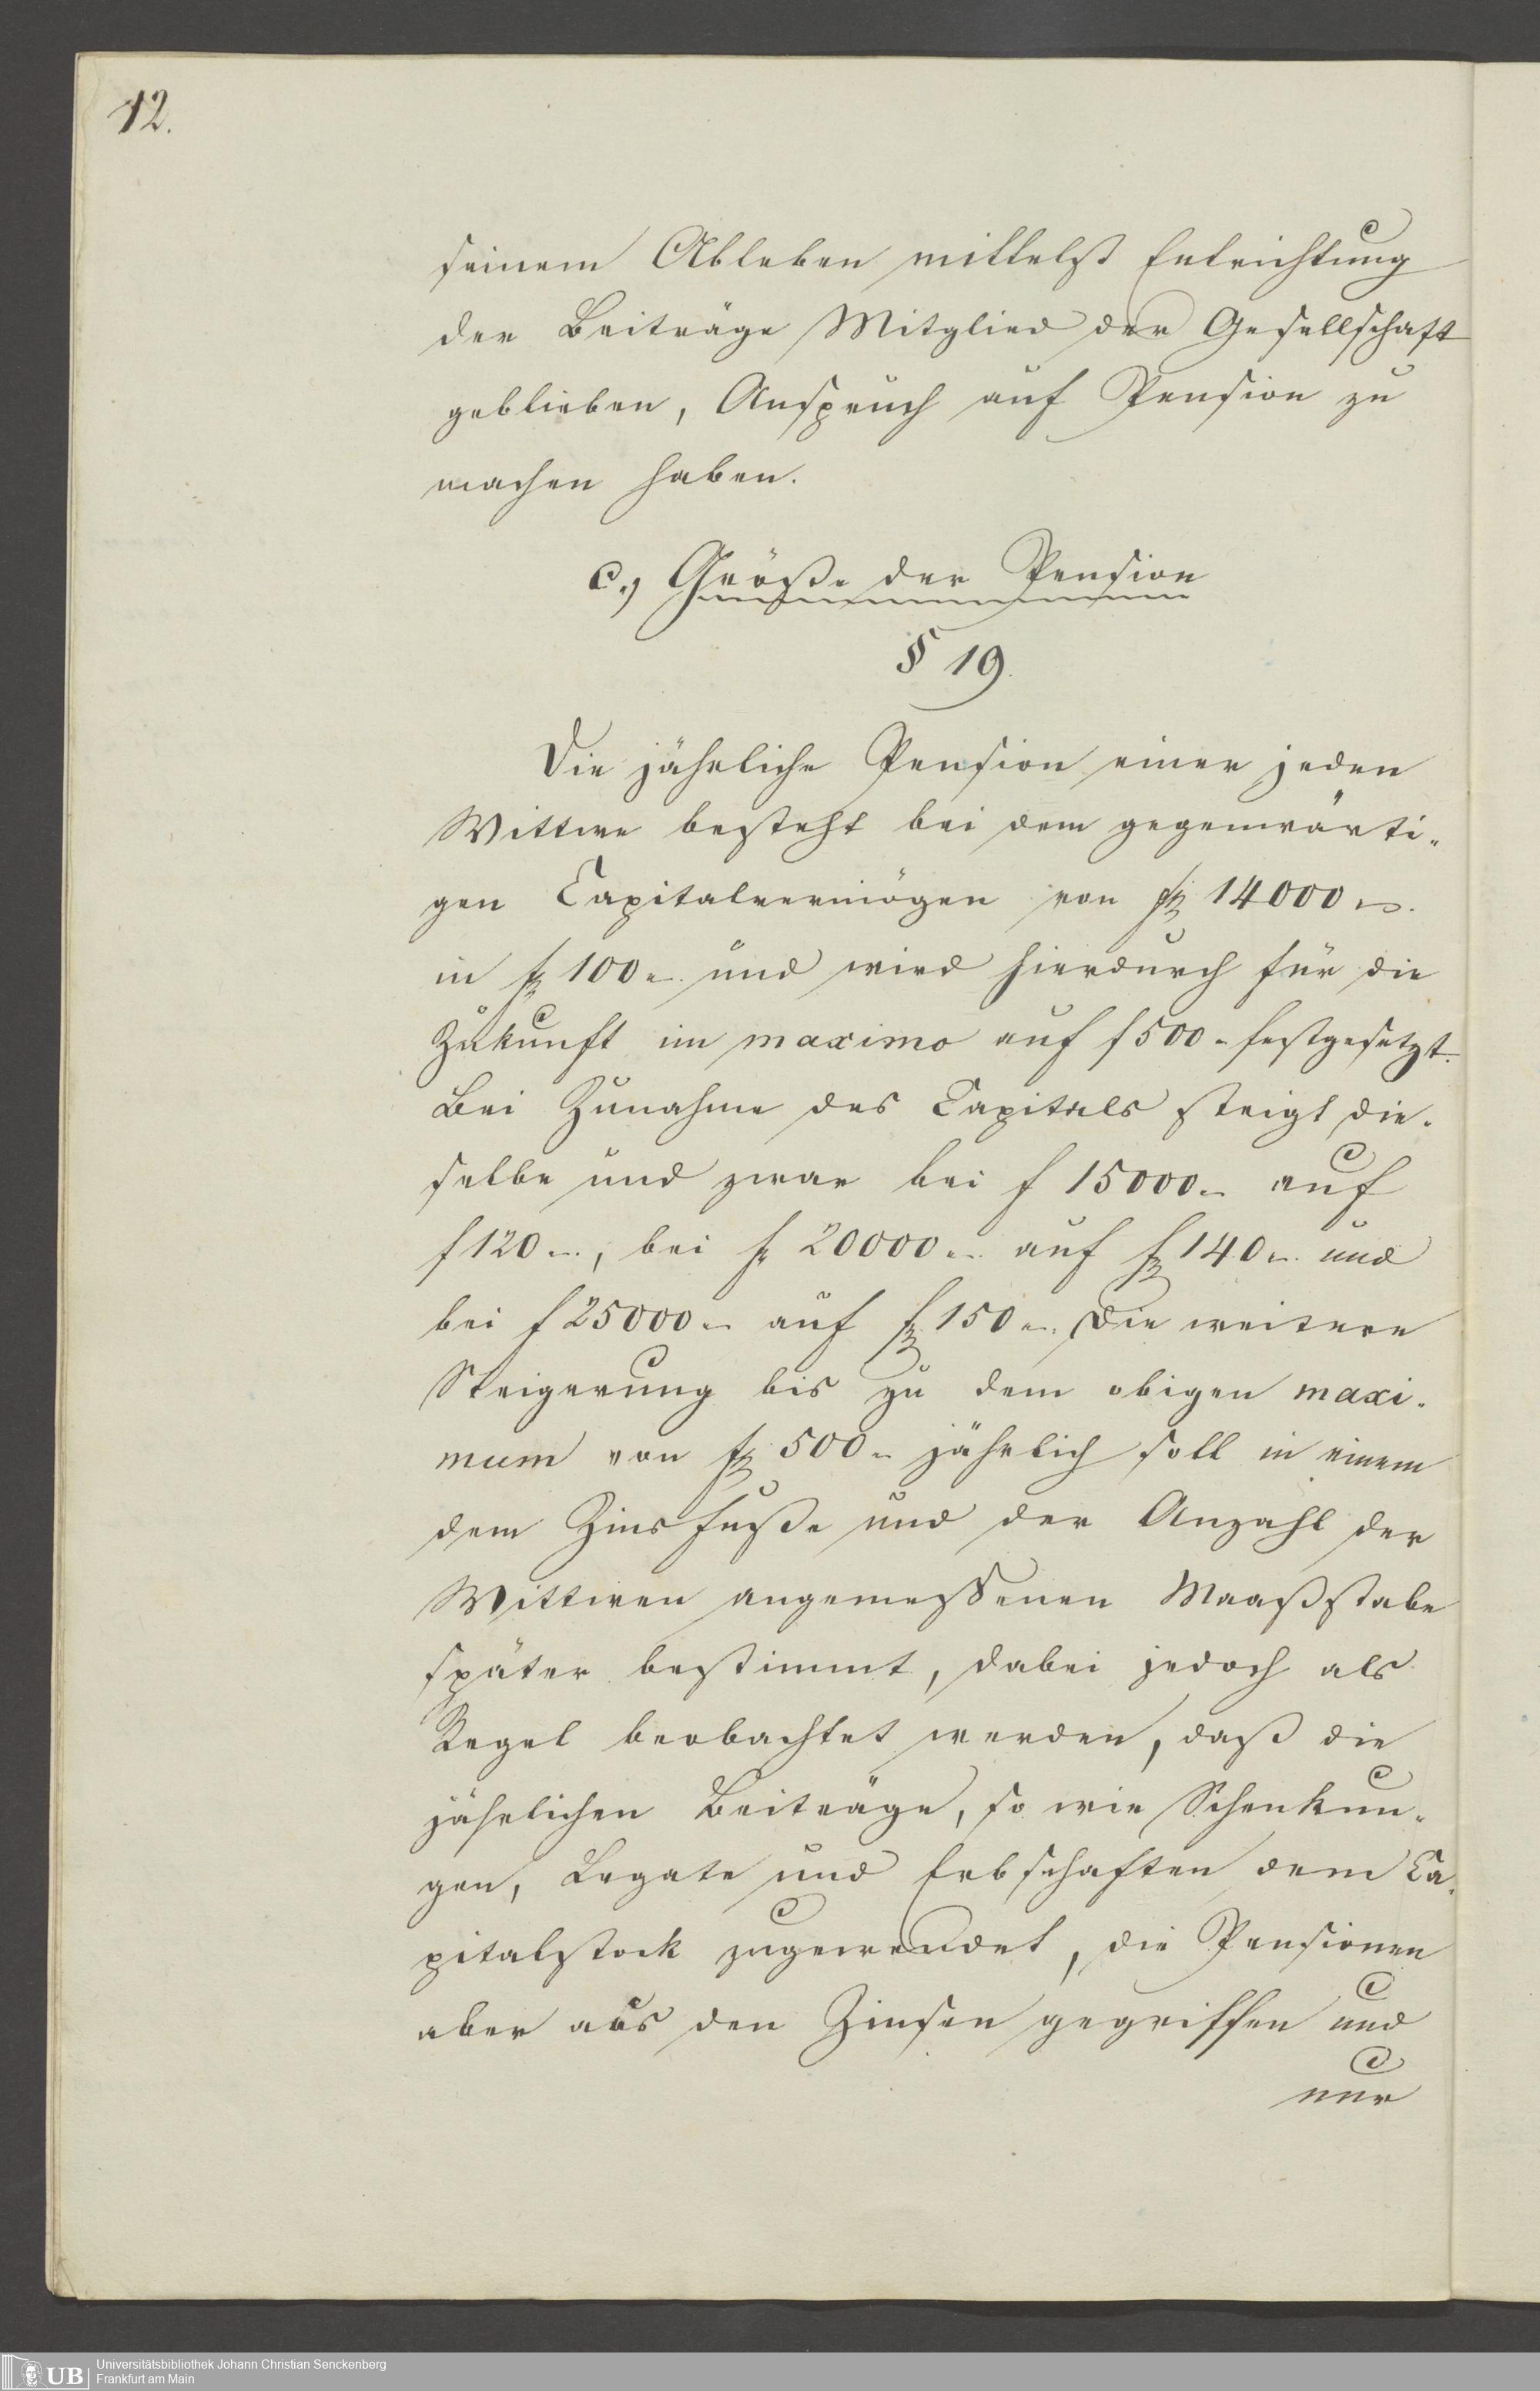 12.
seinem Ableben mittelst Entrichtung
der Beiträge Mitglied der Gesellschaft
geblieben, Anspruch auf Pension zu
machen haben.
c.) Größe der Pension
§ 19.
Die jährliche Pension einer jeden
Wittwe besteht bei dem gegenwärti-
gen Capitalvermögen von f 14000 -.
in f 100 -. und wird hierdurch für die
Zukunft im maximo auf f 500 - festgesetzt.
Bei Zunahme des Capitals steigt die-
selbe und zwar bei f 15000 - auf
f 120 -., bei f 20000 -. auf f 140 -. und
bei f 25000 - auf f 150 -. Die weitere
Steigerung bis zu dem obigen maxi-
mum von f 500 - jährlich soll in einem
dem Zinsfuße und der Anzahl der
Wittwen angemessenen Maaßstabe
später bestimmt, dabei jedoch als
Regel beobachtet werden, daß die
jährlichen Beiträge, so wie Schenkun-
gen, Legate und Erbschaften dem Ca-
pitalstock zugewendet, die Pensionen
aber aus den Zinsen gegriffen und
nur
UB
Universitätsbibliothek Johann Christian Senckenberg
Frankfurt am Main